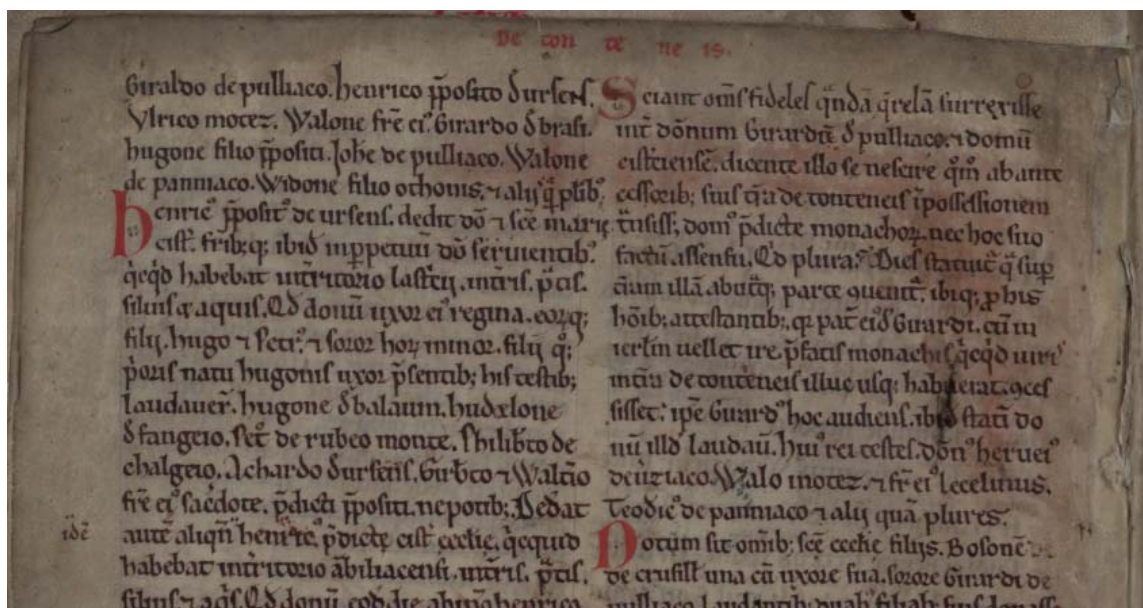 De con te ne is.
Giraldo de pulliaco. henrico p̄posito d̄ ursen̄.
Vlrico motez. Walone fr̄e ei᷒. Girardo d̄ brasi.
hugone filio p̄positi. Joħe de pulliaco. Walone
de panniaco. Widone filio othonis. ⁊ alijs q̄ plib᷒.
henric᷒ p̄posit᷒ de ursens. dedit dō ⁊ sc̄e marie
cist̄. frib; q; ibid̄ inp̄petuū dō seruientib᷒.
q̄cq̄d habebat int̄ritorio lasteij. int̄ris. p̄tis.
siluis ⁊ aquis. Qd̄ donū uxor ei᷒ regina. eorq;
filij. hugo ⁊ secī. ⁊ soror hoꝝ minor. filij q᷒;
p̄oris natu hugonis uxor p̄sentib; his testib;
laudauer̄. hugone d̄ balaun. hudelone
d̄ fangeio. set̄ de rubeo monte. Philib̄to de
chalgeio. Achardo d̄ ursens. Girb̄to ⁊ Walt̄io
fr̄e ei᷒ sac̄dote. p̄dicti p̄positi nepotib; Dedat
idē
autē aliqn̄ henric᷒. p̄dicte cist̄ eccl̄ie. q̄cquid
habebat int̄ritorio ābiliacensi. int̄ris. p̄tis.
siluis ⁊ aq̄s. Qd̄ donū eod̄ die henrico
Sciant om̄s fideles q̄ndā q̄relā surrexisse
int̄ dōnum Girardū d̄ pulliaco. ⁊ domū
cist̄ciensē. dicente illo se nescire q̄m ab ante
cessorib; suis t̄ra de conteneis ī possessionem
t̄nsiss; dom᷒ p̄dicte monachoꝝ. nec hoc suo
factū assensu. Qd̄ plura? Dies statuit᷒ q̄ sup̄
t̄ram illā ab ut̄q; parte ꝯuenit᷒. ibiq; ꝓ his
hōib; attestantib; qꝛ pat̄ eid̄ Girardi. cū in
ierl̄m uellet ire. p̄fatis monachis q̄cq̄d iuris
int̄ra de conteneis illuc usq; habuerat. ꝯces
sisset. ip̄e Girard᷒ hoc audiens. ibid̄ stati do
nū illd̄ laudau̅. hui᷒ rei testes. dōn᷒ herue᷒
Walo motez. ⁊ fr̄ ei᷒ lecelinus.
Teodic᷒ de panniaco ⁊ alij quā plures.
Notum sit om̄ib; sc̄e eccl̄ie filijs. Bosonē
de crusill̄ una cū uxore sua. sorore Girardi de
pulliaco laudantib; duab᷒ filiab; suis